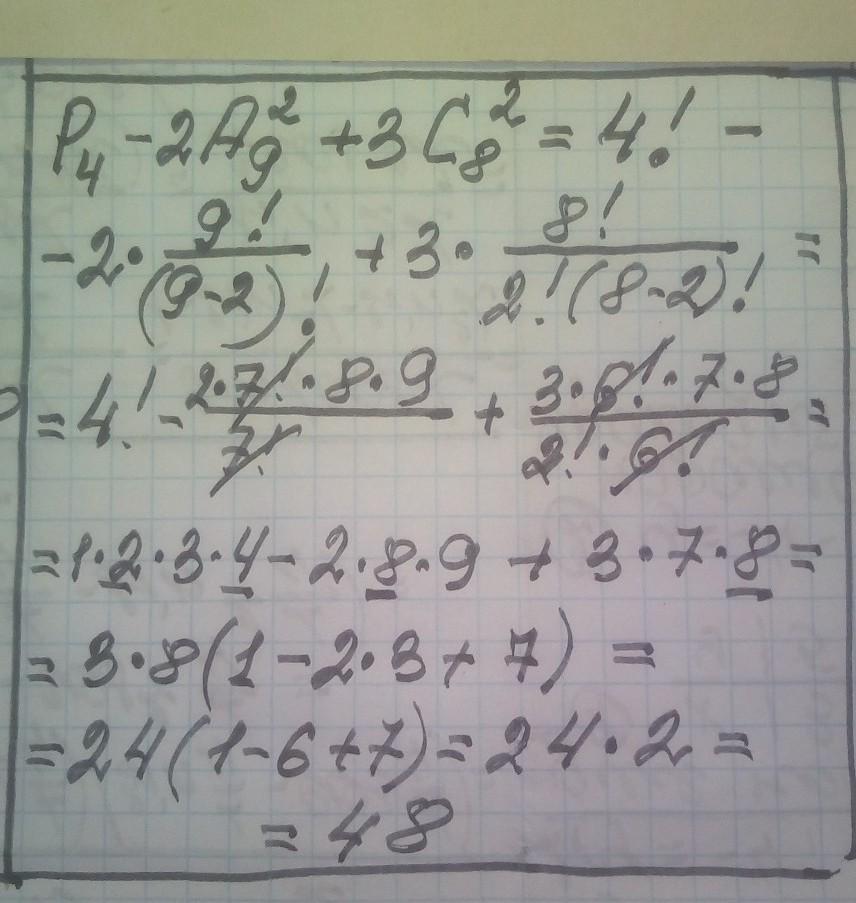 P₄ - 2A₉² + 3C₈² = 4! -
- 2 · 9!/(9-2)! + 3 · 8!/(2!(8-2)!) =
= 4! - (2·7!·8·9)/7! + (3·6!·7·8)/(2!·6!) =
= 1·2·3·4 - 2·8·9 + 3·7·8 =
= 3·8(1 - 2·3 + 7) =
= 24(1-6+7) = 24·2 =
= 48